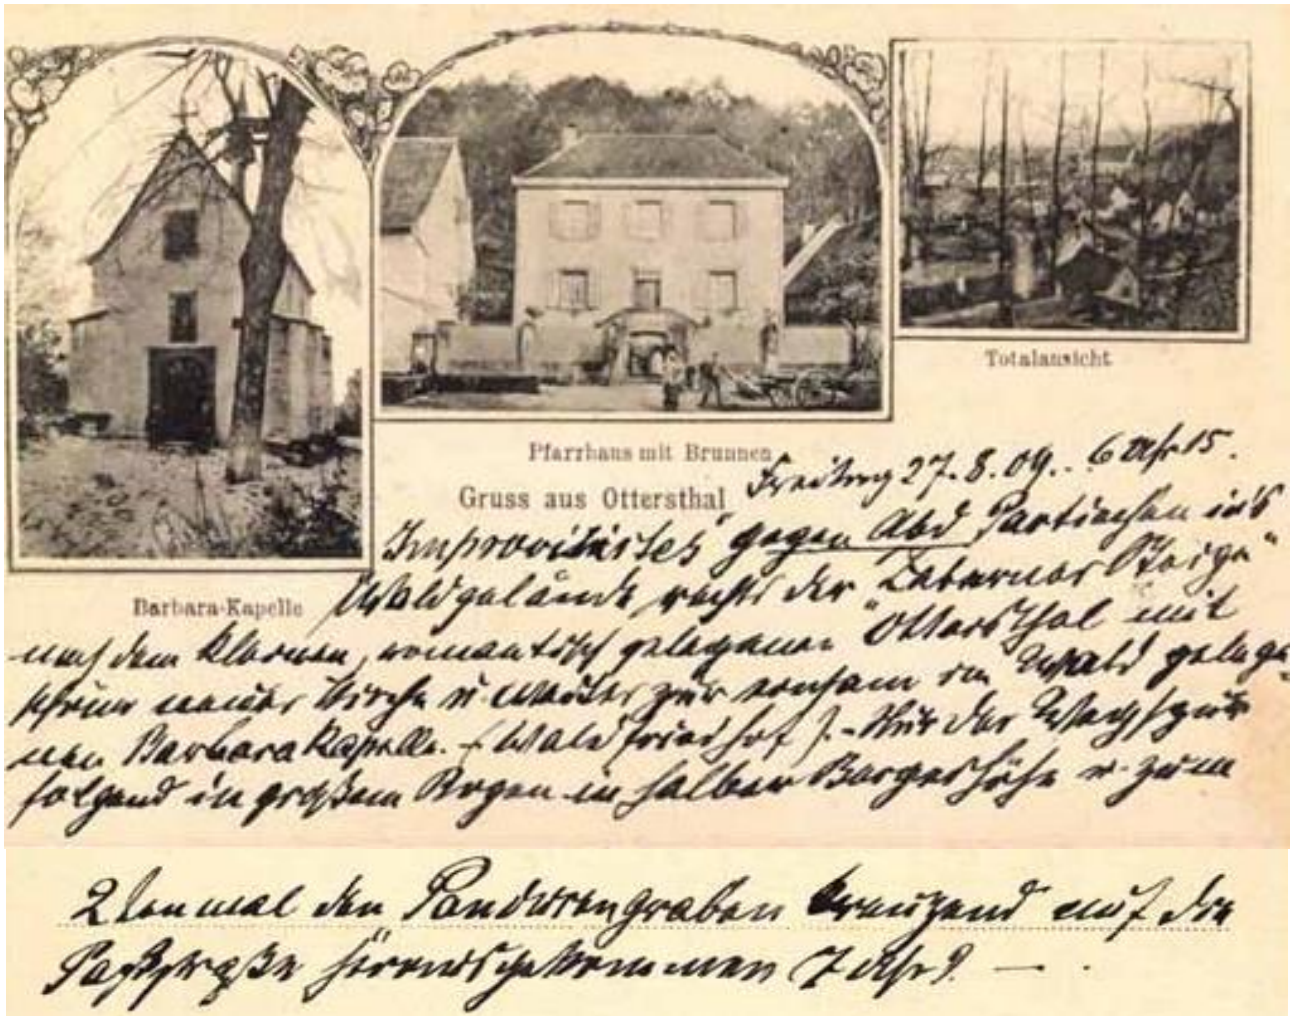 Totalansicht
Pfarrhaus mit Brunnen
Gruss aus Ottersthal
Barbara-Kapelle
Freitag 27.8.09. 6 Uhr 15.
Improvisirtes gegen Abd Partiechen in's
Waldgelände rechts der Zaberner Steige
nach dem kleinen, romantisch gelegenen Ottersthal mit
neuer Kirche u. weiter zur einsam im Wald gelege-
nen Barbarakapelle. (Waldfriedhof). - Nur der Wegspur
folgend in großem Bogen in halber Bergeshöhe u. zum
2ten mal den Pandurengraben kreuzend auf die
Paßstraße herausgekommen 7 Uhr